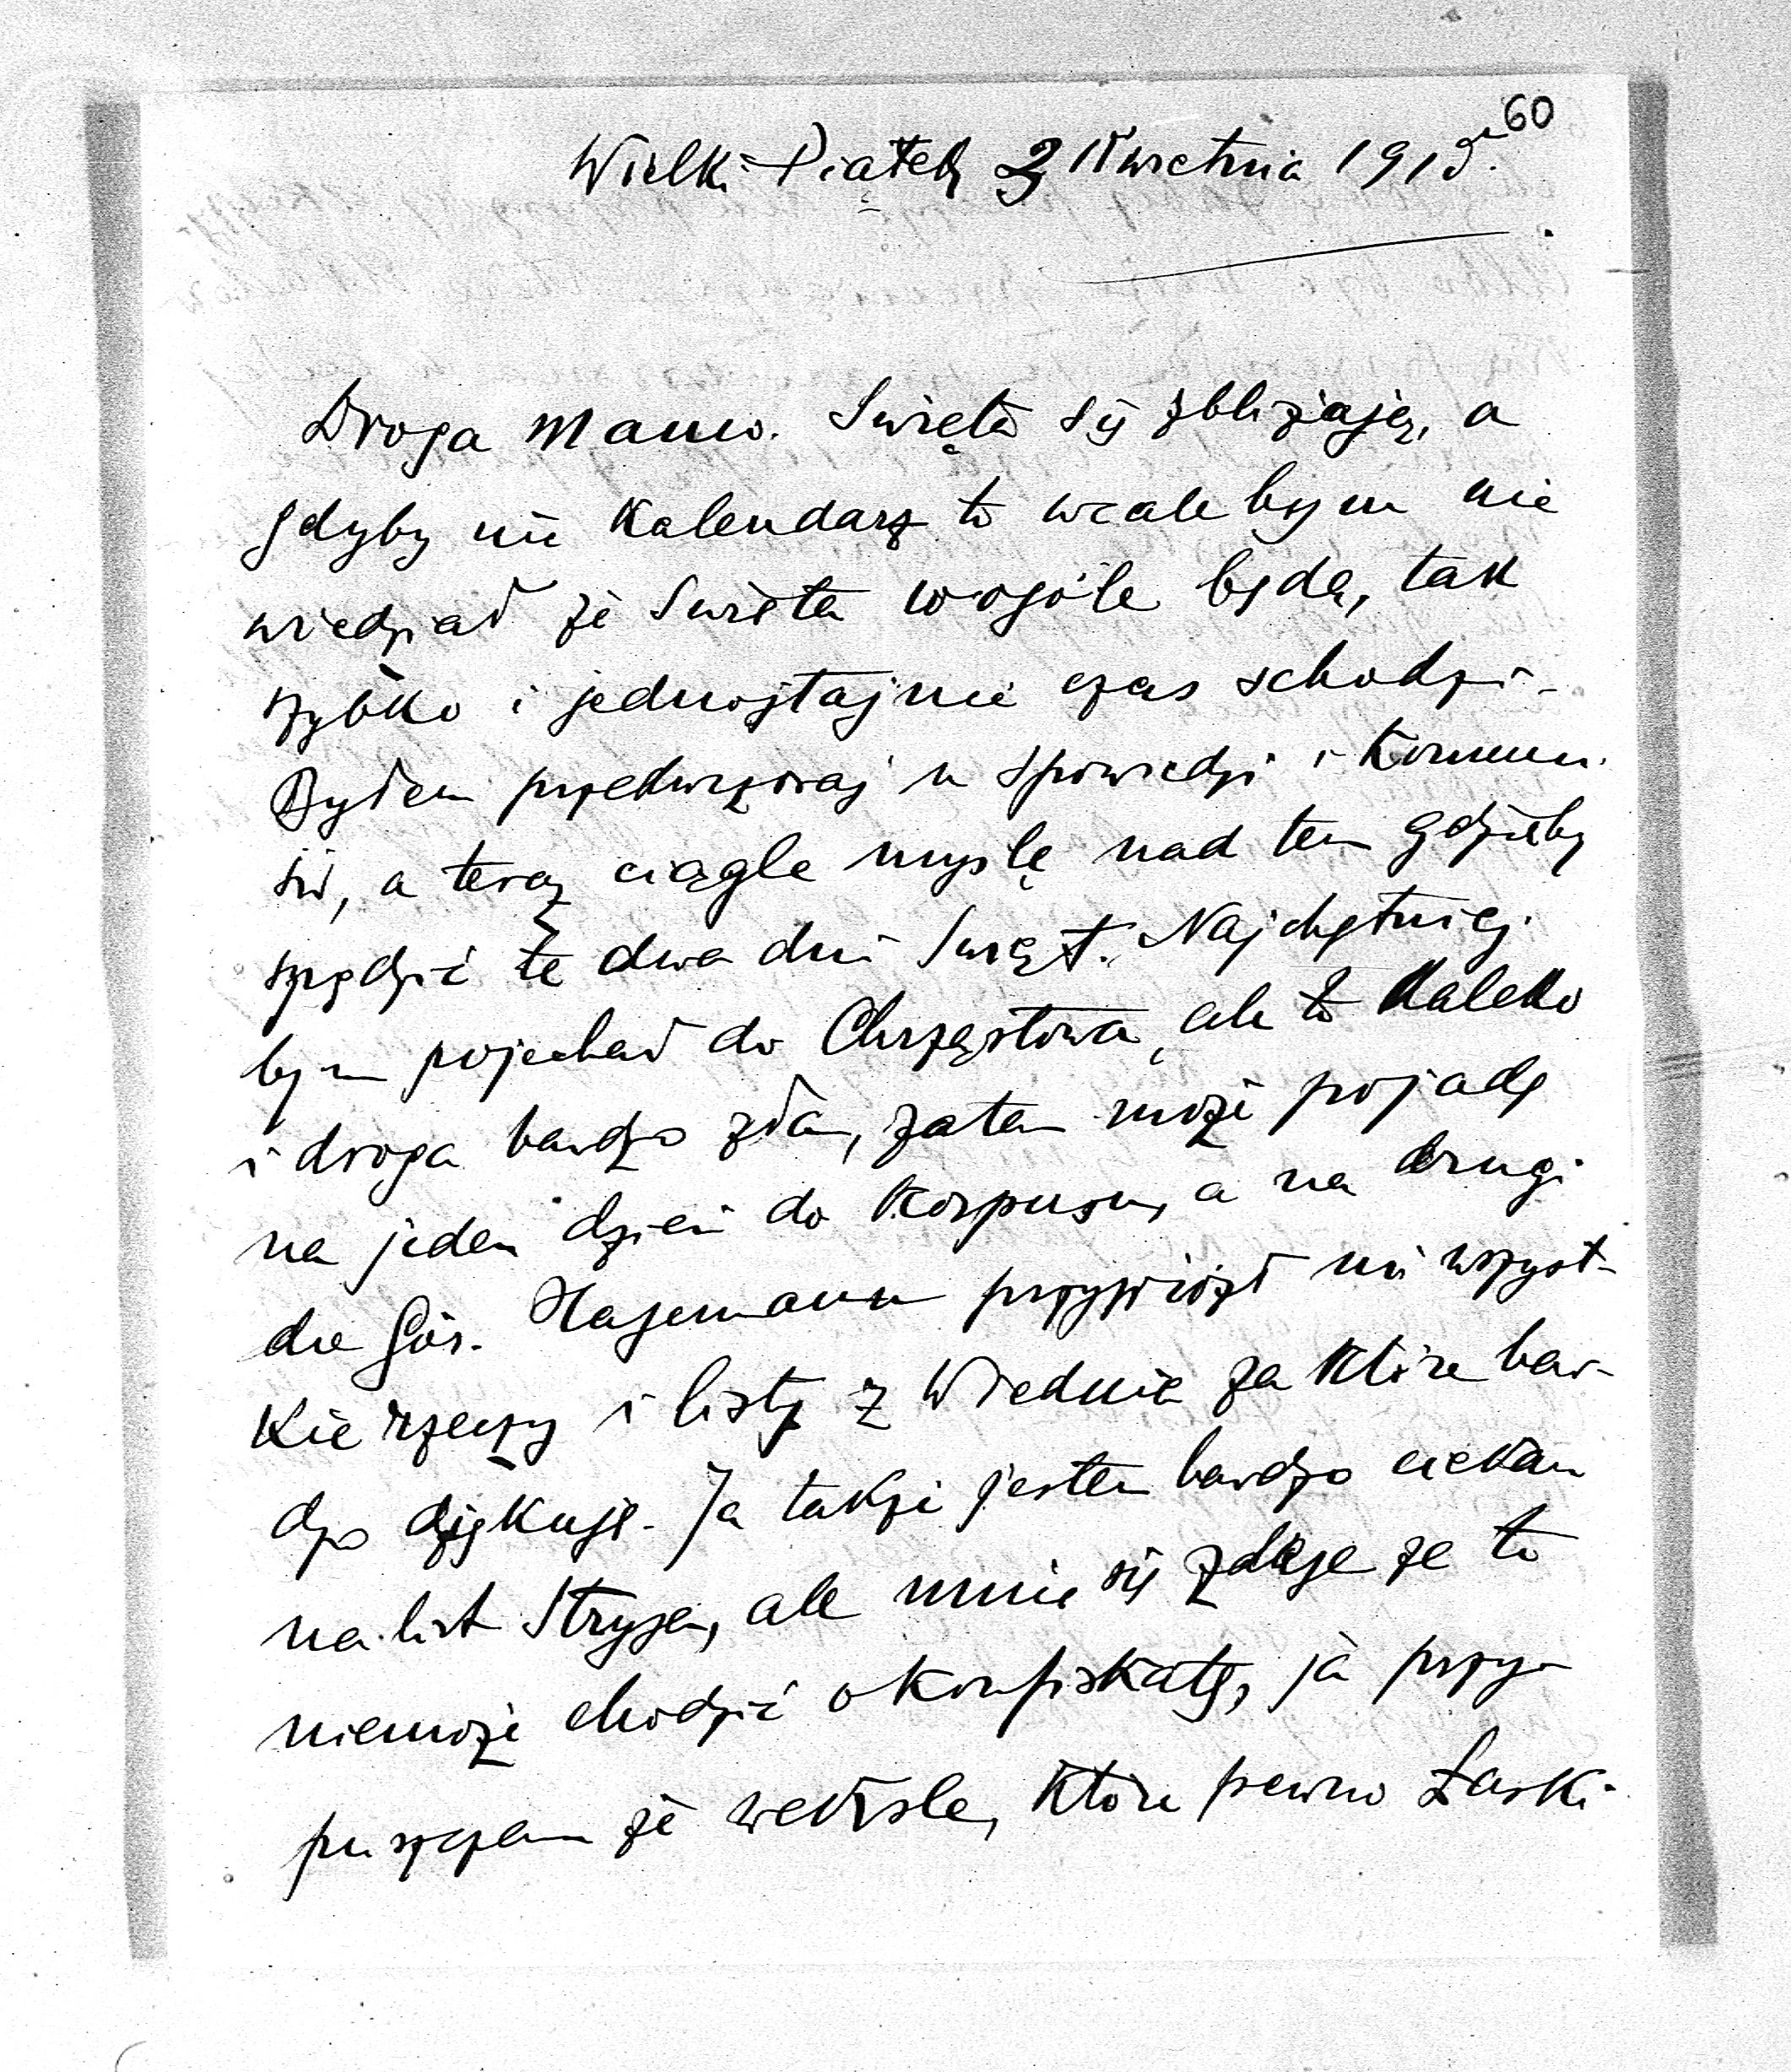 60
Wielki Piątek 2 Kwietnia 1915
Droga Mamo. Swięta się zbliżają, a
gdyby nie Kalendarz to wcale bym nie
wiedział że Swięta wogóle będą, tak
szybko i jednostajnie czas schodzi.
Byłem przedwczoraj u spowiedzi i Komun.
św, a teraz ciągle myslę nad tem gdzieby
spędzić te dwa dni Swiąt. Najchętniej
bym pojechał do Chrząstowa, ale to kaleko
i droga bardzo zła, zatem może pojadę
na jeden dzień do Korpusu, a na drugi
do Gór. Hagemann przywiózł mi wszyst-
Kie rzeczy i listy z Wiednia za Które bar-
dzo dziękuję. Ja także jestem bardzo ciekaw
na list Stryja, ale mnie się zdaje ze to
niemoże chodzić o Konfiskatę, ja przy-
puszczam że weksle, Które pewno Łaski